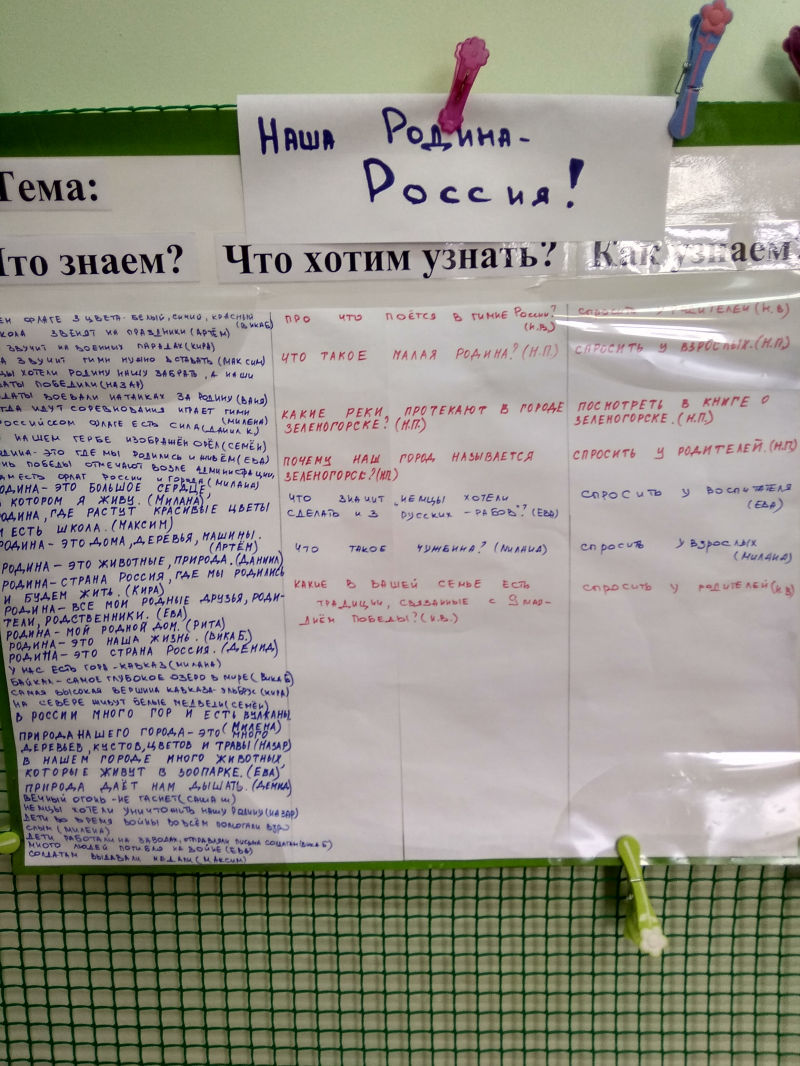 Наша Родина-
Россия!
Тема:
Что знаем?
Что хотим узнать?
Как узнаем
флаге 3 цвета- белый, синий, красный
(Вика Б)
звенят на праздники (Артём)
звучит на военных парадах (Кира)
звучит гимн нужно вставать (Максим)
хотели Родину нашу забрать, а наши
победили (Назар)
воевали на танках за Родину (Ваня)
идут соревнования играет гимн
(Милена)
российском флаге есть сила (Даниил К.)
нашем гербе изображён орёл (Семён)
это где мы родились и живём (Ева)
победы отмечают возле администрации,
есть флаг России и города (Милана)
Родина- это большое сердце,
в котором я живу. (Милана)
Родина, где растут красивые цветы
и есть школа. (Максим)
Родина- это дома, деревья, машины.
(Артём)
Родина- это животные, природа. (Даниил)
Родина- страна Россия, где мы родились
и будем жить. (Кира)
Родина- все мои родные друзья, роди-
тели, родственники. (Ева)
Родина- мой родной дом. (Рита)
Родина- это наша жизнь. (Вика Б.)
Родина- это страна Россия. (Демид)
У нас есть гора- Кавказ (Милана)
Байкал- самое глубокое озеро в мире (Вика Б)
Самая высокая вершина Кавказа- Эльбрус (Кира)
На севере живут белые медведи (Семён)
В России много гор и есть вулканы
(Милена)
Природа нашего города- это много
деревьев, кустов, цветов и травы (Назар)
В нашем городе много животных,
которые живут в зоопарке. (Ева)
Природа даёт нам дышать. (Демид)
Вечный огонь- не гаснет (Саша Ш)
Немцы хотели уничтожить нашу Родину (Назар)
Дети во время войны во всём помогали взро
слым (Милена)
Дети работали на заводах, отправляли письма солдатам (Вика Б)
Много людей погибло на войне (Ева)
Солдатам выдавали медали (Максим)
Про что поётся в гимне России?
(И.В)
Что такое малая Родина? (Н.П.)
Какие реки протекают в городе
Зеленогорске? (Н.П.)
Почему наш город называется
Зеленогорск? (Н.П.)
Что значит „Немцы хотели
сделать из русских - рабов"? (Ева)
Что такое чужбина? (Милана)
Какие в вашей семье есть
традиции, связанные с 9 мая-
Днём Победы? (И.В.)
Спросить у родителей (И.В)
Спросить у взрослых. (Н.П.)
Посмотреть в книге о
Зеленогорске. (Н.П.)
Спросить у родителей. (Н.П)
Спросить у воспитателя
(Ева)
Спросить у взрослых
(Милана)
Спросить у родителей (И.В)